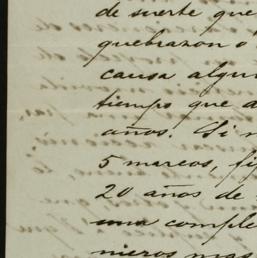 de suerte que
quebrazon o
causa algu
tiempo que a
años. Si n
5 marcos, fi
20 años de
una comple
nieros mas